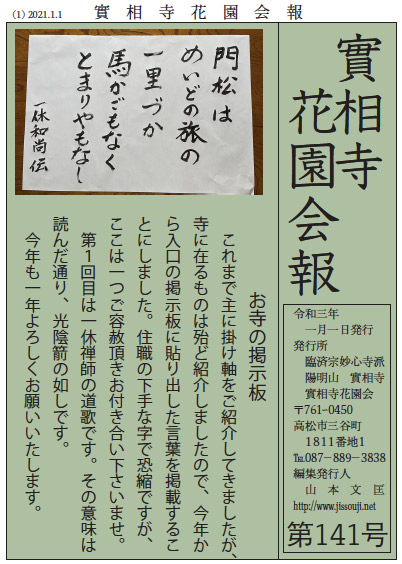 (1) 2021.1.1　實相寺花園会報
實相寺
花園会報
令和三年
一月一日発行
発行所
臨済宗妙心寺派
陽明山　實相寺
實相寺花園会
〒761-0450
高松市三谷町
1811番地1
℡087-889-3838
編集発行人
山本文匡
http://www.jissouji.net
第141号
門松は
めいどの旅の
一里づか
馬かごもなく
とまりやもなし
一休和尚伝
お寺の掲示板
これまで主に掛け軸をご紹介してきましたが、
寺に在るものは殆ど紹介しましたので、今年か
ら入口の掲示板に貼り出した言葉を掲載するこ
とにしました。住職の下手な字で恐縮ですが、
ここは一つご容赦頂きお付き合い下さいませ。
第1回目は一休禅師の道歌です。その意味は
読んだ通り、光陰箭の如しです。
今年も一年よろしくお願いいたします。